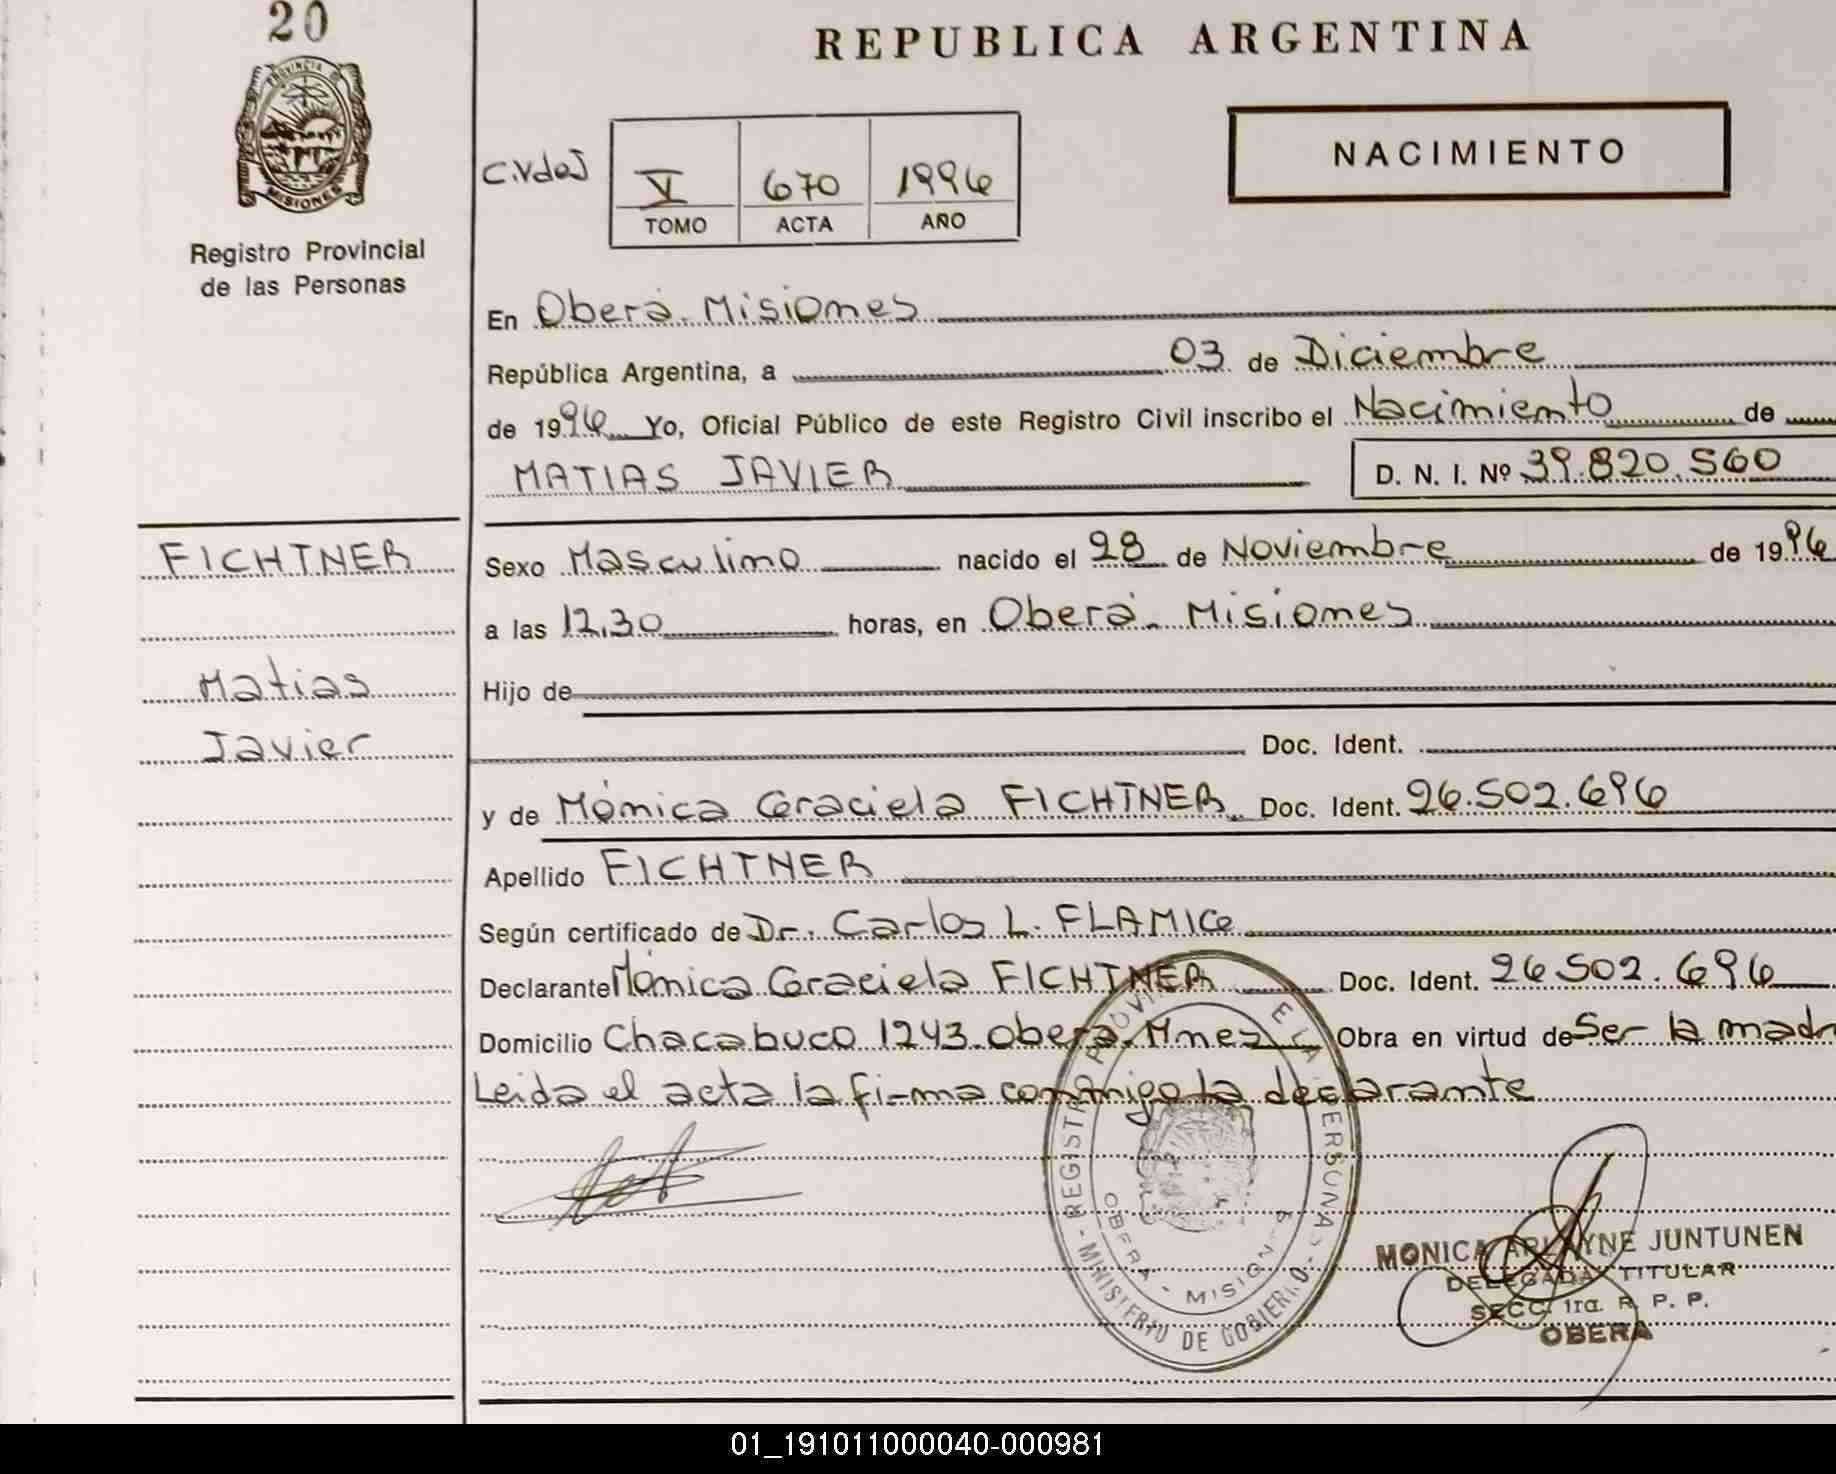 20
REPUBLICA ARGENTINA
PROVINCIA DE
MISIONES
Registro Provincial
de las Personas
NACIMIENTO
C.VdeJ
V 670 1996
TOMO ACTA AÑO
En Oberá. Misiones
República Argentina, a 03 de Diciembre
de 1996 Yo, Oficial Público de este Registro Civil inscribo el Nacimiento de
MATIAS JAVIER D. N. I. Nº 39.820.560
FICHTNER
Matias
Javier
Sexo Masculino nacido el 28 de Noviembre de 1996
a las 12.30 horas, en Oberá. Misiones
Hijo de
Doc. Ident.
y de Mónica Graciela FICHTNER Doc. Ident. 26.502.696
Apellido FICHTNER
Según certificado de Dr. Carlos L. FLAMICE
Declarante Mónica Graciela FICHTNER Doc. Ident. 26.502.696
Domicilio Chacabuco 1243. Oberá. Mnes Obra en virtud de Ser la madr
Leida el acta la firma conmigo la declarante
MINISTERIO DE GOBIERNO
OBERA - MISIONES
MONICA ARLAYNE JUNTUNEN
DELEGADA TITULAR
SECC. 1ra. R. P. P.
OBERA
01_191011000040-000981